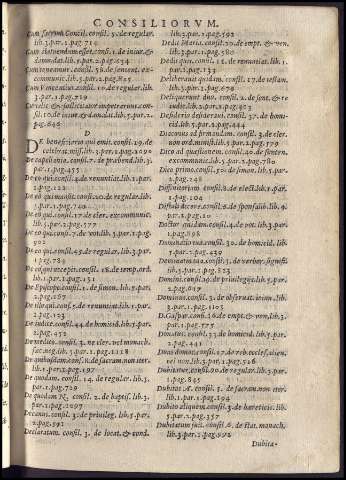 CONSILIORVM.
Cum sacrum Concil. consil. 5. de regular.
lib. 3. par. 1. pag. 714
Cum statuendum esset, consil. 1. de iniur. &
damn. dat. lib. 5. par. 2. pag. 634
Cum teneamur. consil. 58. de sentent. ex-
communic. lib. 5. par. 2. pag. 825
Cum Vincentius. consil. 10. de regular. lib.
3. par. 1. pag.
consil. 10. de iniur. & dam. dat. lib. 5. par.
2. pag. 646
D
DE beneficiario qui emit. consil. 29. de
lib. 3. par. 1. pag. 1090
De capellania. consil. 7. de prabend. lib. 3.
par. 1. pag. 455
De eo qui. consil. 4. de renuntiat. lib. 1. par.
1. pag. 122
De eo qui monasi. consil. 20. de regular. lib.
3. par. 1. pag. 740
De eo qui. consil. 17. de cler. excommunic.
lib. 5. par. 1. pag. 577
De eo qui. consil. 7. de vot. lib. 5. par. 1.
pag. 902
De eo qui. consil. 45. de regular. lib. 3. par.
1. pag. 789
De eo qui recepit. consil. 18. de temp. ord.
lib. 1. par. 1. pag. 231
De Episcopo. consil. 1. de simon. lib. 5. par.
2. pag. 167
De illo qui. consil. 5. de renuntiat. lib. 1. par.
1. pag. 123
De iudice. consil. 44. de homicid. lib. 5. par.
1. pag. 452
De medico. consil. 3. ne cler. vel monach.
sac. neg. lib. 3. par. 1. pag. 1128
De quibusdam. consil. 8. de sacram. non iter.
lib. 1. par. 2. pag. 197
De quodam. consil. 14. de regular. lib. 3.
par. 1. pag. 729
De quodam N. consil. 2. de baptis. lib. 3.
par. 2. pag. 1097
Decanus. consil. 3. de privileg. lib. 5. par.
2. pag. 591
Declaratum. consil. 3. de locat. & cond.
lib. 3. par. 1. pag. 592
Dedit litteris. consil. 20. de empt. & ven.
lib. 3. par. 1. pag. 580
Dedit quis. consil. 15. de renuntiat. lib. 1.
par. 1. pag. 133
Deliberavit quidam. consil. 17. de testam.
lib. 3. par. 1. pag. 678
Deliquerunt duo. consil. 2. de sent. & re
iudic. lib. 2. par. 1. pag. 423
Desiderio desideravi. consil. 37. de homi-
cid. lib. 5. par. 2. pag. 444
Diaconus ad firmandam. consil. 3. de cler.
non ord. minist. lib. 5. par. 2. pag. 579
Dico ad quasitum. consil. 40. de senten.
excommunic. lib. 5. par. 2. pag. 780
Dico primo. consil. 50. de simon. lib. 5. par.
2. pag. 248
Dissensiorum. consil. 8. de elect. lib. 1. par.
1. pag. 104
consil. 8. de sponsalib. lib. 4.
par. 1. pag. 10
Doctor quidam. consil. 4. de vot. lib. 3. par.
1. pag. 898
Donatio tua. consil. 30. de homicid. lib. 5.
par. 2. pag. 439
Domination tua. consil. 5. de verbor. signifi.
lib. 5. par. 2. pag. 823
Domini. consil. 30. de privilegijs. lib. 5. par.
2. pag. 617
Dominus. consil. 3. de observat. ieiun. lib.
3. par. 1. pag. 1103
D. Caspar. consil. 16. de empt. & ven. lib. 3.
par. 1. pag. 575
Donatus. consil. 33. de homicid. lib. 5. par.
2. pag. 441
Duas domos. consil. 17. de reb. eccles. alien.
vel non. lib. 3. par. 1. pag. 526
Dubitatur. consil. 90. de regular. lib. 3. par.
1. pag. 845
Dubitat A. consil. 3. de sacram. non iter.
lib. 1. par. 1. pag. 194
Dubito aliquem. consil. 3. de hareticis. lib.
5. par. 2. pag. 357
Dubitatum fuit. consil. 6. de stat. monach.
lib. 3. par. 1. pag. 992
Dubita-